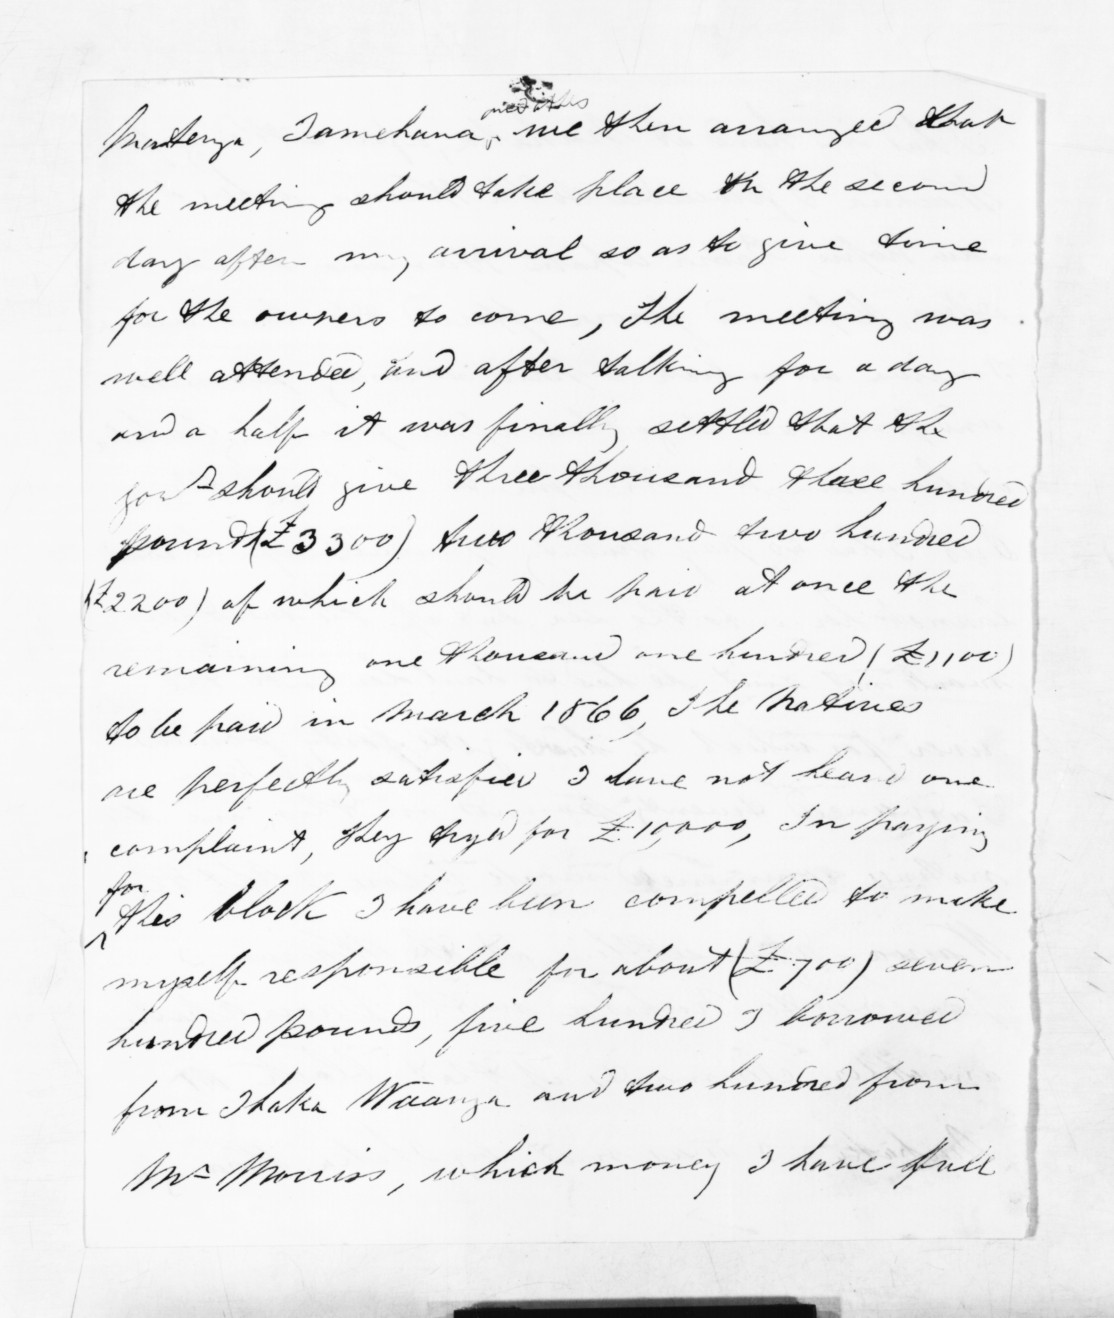 Matenga, Tamehana, we then arranged that
the meeting should take place on the second
day after my arrival so as to give time
for the owners to come, The meeting was
well attended, and after talking for a day
and a half it was finally settled that the
govt should give three thousand three hundred
pound (£3300) two thousand two hundred
(£2200) of which should be paid at once the
remaining one thousand one hundred (£1100)
to be paid in March 1866, The Natives
are perfectly satisfied I have not heard one
complaint, they tryd for £10,000, In paying
for
this block I have been compelled to make
myself responsible for about (£700) seven
hundred pounds, five hundred I borrowed
from Ihaka Waanga and two hundred from
Mr Morriss, which money I have full